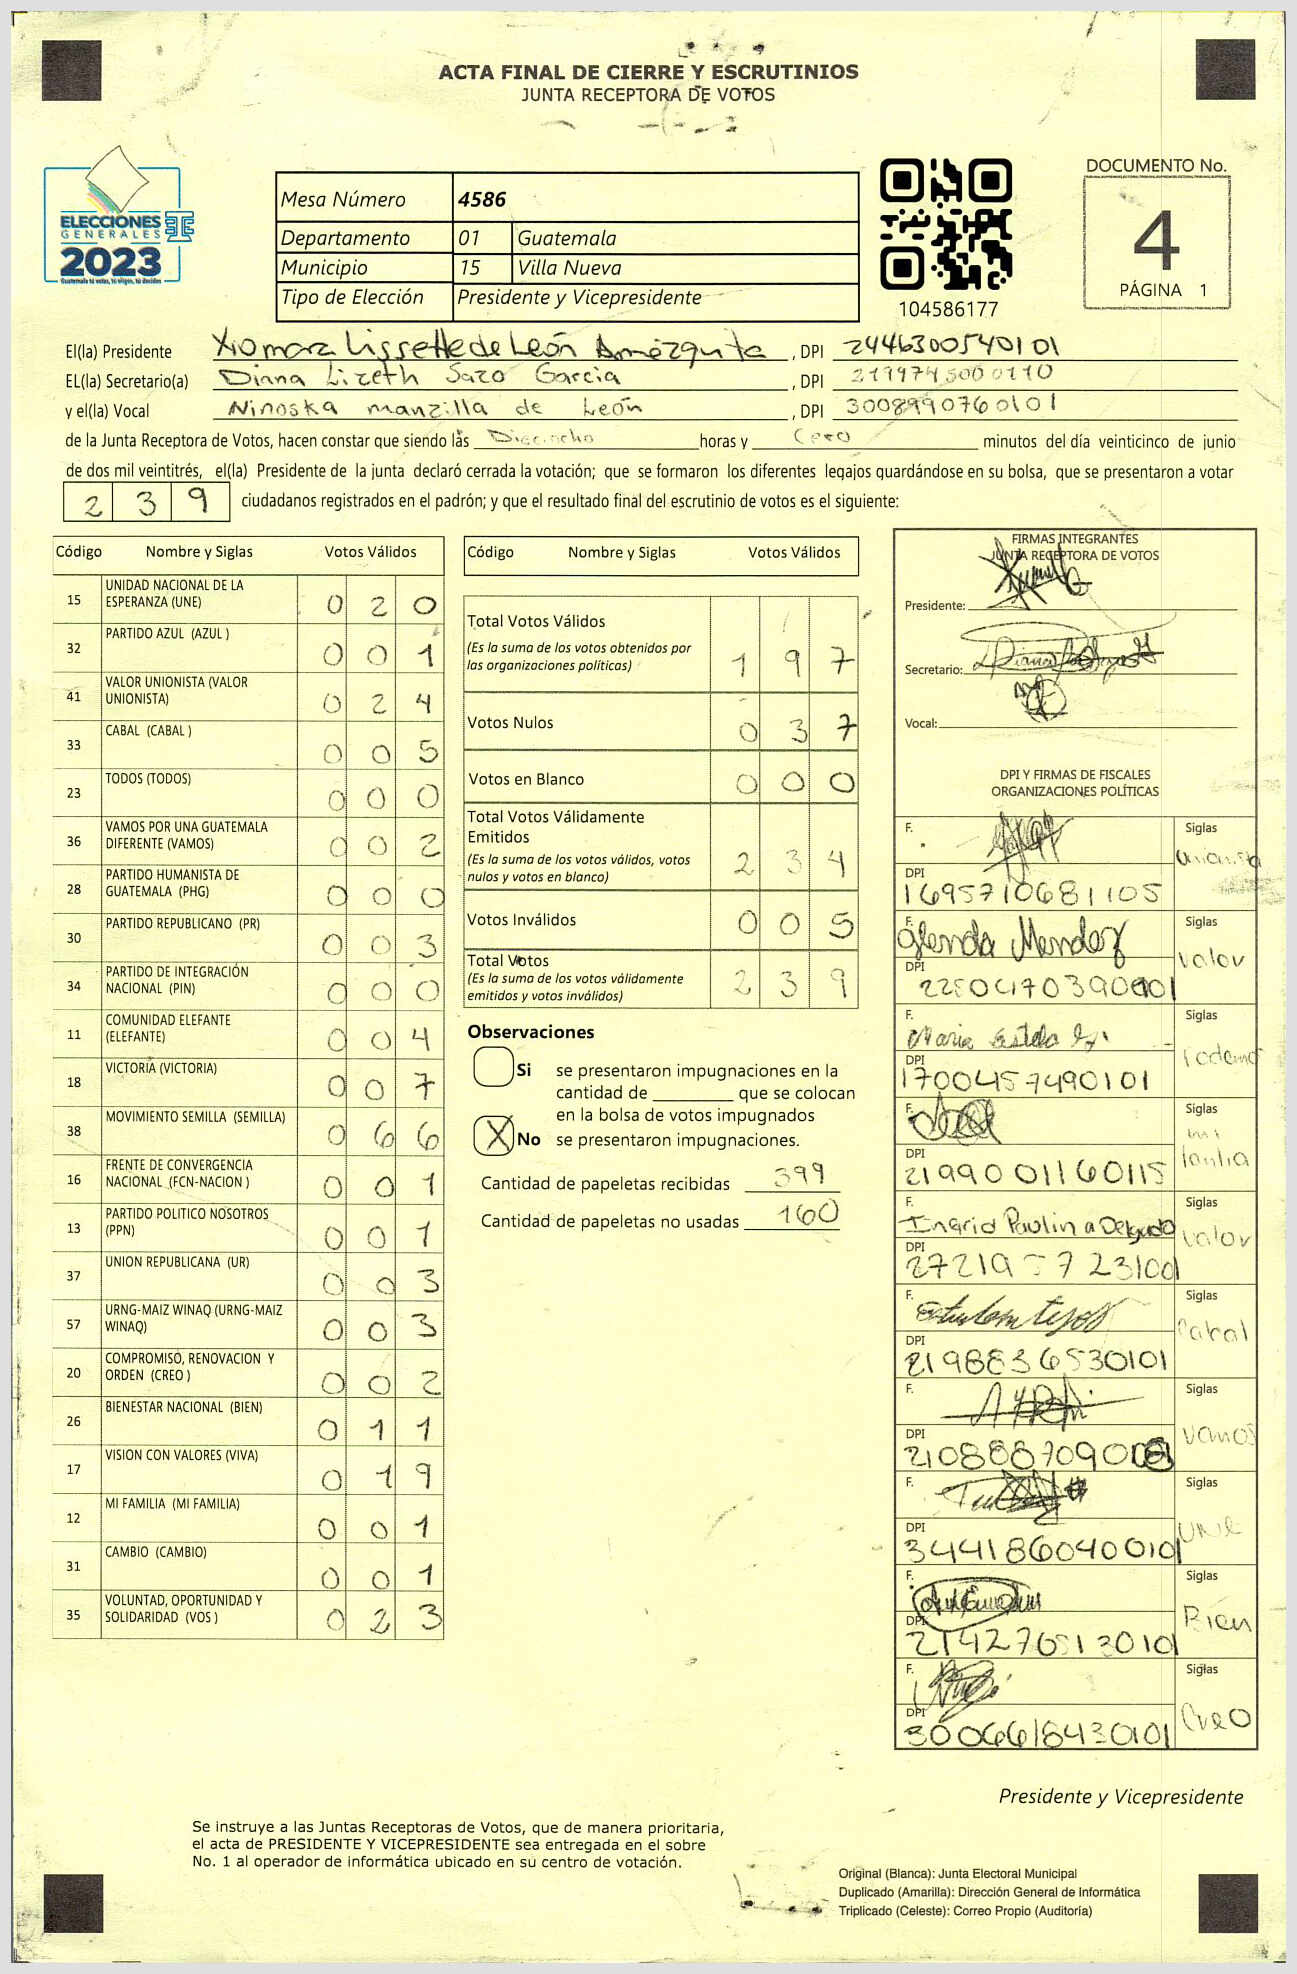 ACTA FINAL DE CIERRE Y ESCRUTINIOS
JUNTA RECEPTORA DE VOTOS
ELECCIONES
GENERALES
2023
Guatemala tú votas, tú eliges, tú decides
Mesa Número 4586
Departamento 01 Guatemala
Municipio 15 Villa Nueva
Tipo de Elección Presidente y Vicepresidente
104586177
DOCUMENTO No.
4
PÁGINA 1
El(la) Presidente Xiomara Lissette de León Amézquita, DPI 2446300540101
EL(la) Secretario(a) Diana Lizeth Sazo Garcia, DPI
y el(la) Vocal Ninoska manzilla de León, DPI 3008990760101
de la Junta Receptora de Votos, hacen constar que siendo las Dieciocho horas y Cero minutos del día veinticinco de junio
de dos mil veintitrés, el(la) Presidente de la junta declaró cerrada la votación; que se formaron los diferentes legajos guardándose en su bolsa, que se presentaron a votar
2 3 9 ciudadanos registrados en el padrón; y que el resultado final del escrutinio de votos es el siguiente:
Código Nombre y Siglas Votos Válidos
15 UNIDAD NACIONAL DE LA ESPERANZA (UNE) 0 2 0
32 PARTIDO AZUL (AZUL ) 0 0 1
41 VALOR UNIONISTA (VALOR UNIONISTA) 0 2 4
33 CABAL (CABAL ) 0 0 5
23 TODOS (TODOS) 0 0 0
36 VAMOS POR UNA GUATEMALA DIFERENTE (VAMOS) 0 0 2
28 PARTIDO HUMANISTA DE GUATEMALA (PHG) 0 0 0
30 PARTIDO REPUBLICANO (PR) 0 0 3
34 PARTIDO DE INTEGRACIÓN NACIONAL (PIN) 0 0 0
11 COMUNIDAD ELEFANTE (ELEFANTE) 0 0 4
18 VICTORIA (VICTORIA) 0 0 7
38 MOVIMIENTO SEMILLA (SEMILLA) 0 6 6
16 FRENTE DE CONVERGENCIA NACIONAL (FCN-NACION ) 0 0 1
13 PARTIDO POLITICO NOSOTROS (PPN) 0 0 1
37 UNION REPUBLICANA (UR) 0 0 3
57 URNG-MAIZ WINAQ (URNG-MAIZ WINAQ) 0 0 3
20 COMPROMISO, RENOVACION Y ORDEN (CREO ) 0 0 2
26 BIENESTAR NACIONAL (BIEN) 0 1 1
17 VISION CON VALORES (VIVA) 0 1 9
12 MI FAMILIA (MI FAMILIA) 0 0 1
31 CAMBIO (CAMBIO) 0 0 1
35 VOLUNTAD, OPORTUNIDAD Y SOLIDARIDAD (VOS ) 0 2 3
Código Nombre y Siglas Votos Válidos
Total Votos Válidos
(Es la suma de los votos obtenidos por
las organizaciones políticas) 1 9 7
Votos Nulos 0 3 7
Votos en Blanco 0 0 0
Total Votos Válidamente
Emitidos
(Es la suma de los votos válidos, votos
nulos y votos en blanco) 2 3 4
Votos Inválidos 0 0 5
Total Votos
(Es la suma de los votos válidamente
emitidos y votos inválidos) 2 3 9
Observaciones
Si se presentaron impugnaciones en la
cantidad de ________ que se colocan
en la bolsa de votos impugnados
X No se presentaron impugnaciones.
Cantidad de papeletas recibidas 399
Cantidad de papeletas no usadas 160
FIRMAS INTEGRANTES
JUNTA RECEPTORA DE VOTOS
Presidente:
Secretario:
Vocal:
DPI Y FIRMAS DE FISCALES
ORGANIZACIONES POLÍTICAS
F. Siglas unionista
DPI 1695710681105
F. Glenda Mendez Siglas valor
DPI
F. Maria Estela Siglas
DPI 1700457490101
F. Siglas mi familia
DPI 2199001160115
F. Ingrid Paulina Delgado Siglas valor
DPI
F. Siglas Cabal
DPI 2198836530101
F. Siglas vamos
DPI
F. Siglas UNE
DPI 3441860400101
F. Siglas Bien
DPI
F. Siglas Creo
DPI 3006618430101
Presidente y Vicepresidente
Se instruye a las Juntas Receptoras de Votos, que de manera prioritaria,
el acta de PRESIDENTE Y VICEPRESIDENTE sea entregada en el sobre
No. 1 al operador de informática ubicado en su centro de votación.
Original (Blanca): Junta Electoral Municipal
Duplicado (Amarilla): Dirección General de Informática
Triplicado (Celeste): Correo Propio (Auditoría)